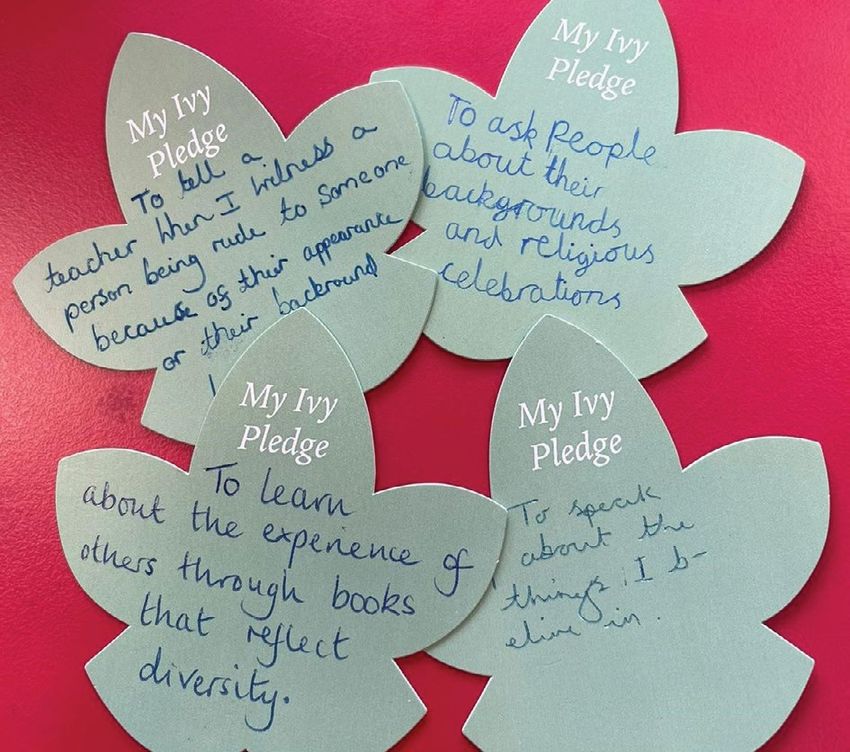 My Ivy
Pledge
To tell a
teacher when I witness a
person being rude to someone
because of their appearance
or their backround
My Ivy
Pledge
To ask People
about their
backgrounds
and religious
celebrations
My Ivy
Pledge
To learn
about the experience of
others through books
that reflect
diversity.
My Ivy
Pledge
To speak
about the
things I b-
elive in.